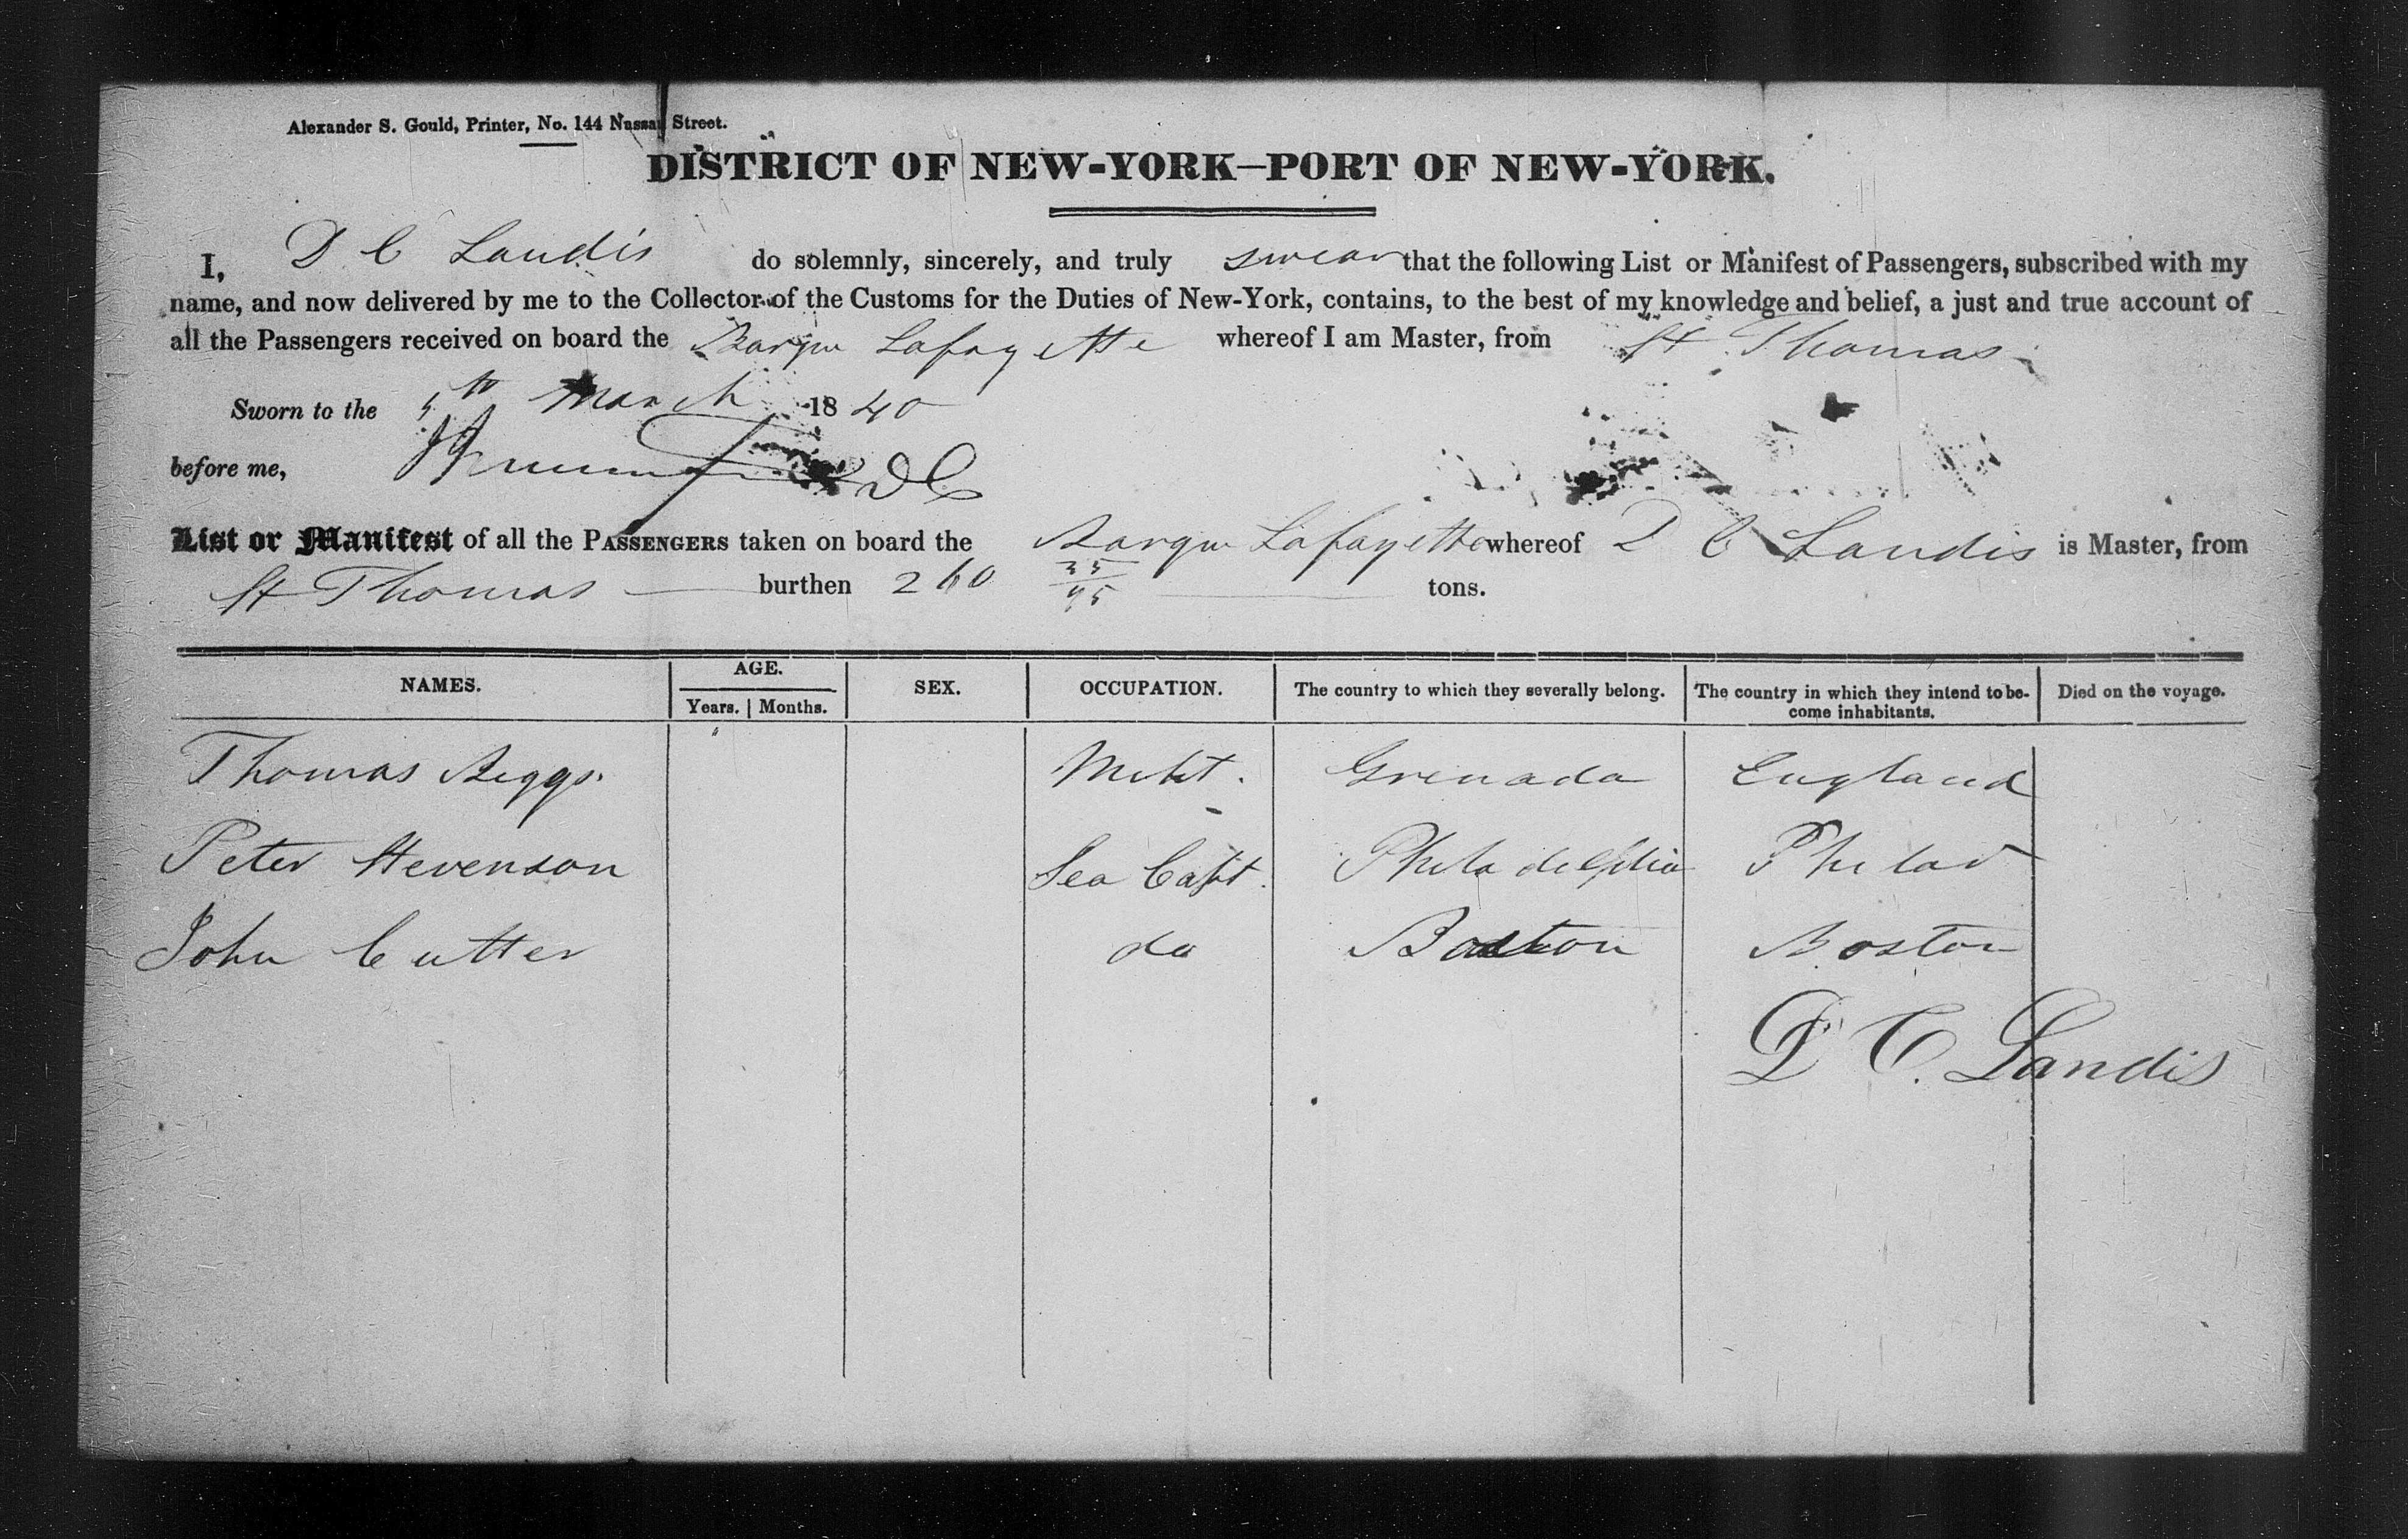 Alexander S. Gould, Printer, No. 144 Nassau Street.
DISTRICT OF NEW-YORK—PORT OF NEW-YORK.
I, D C Landis do solemnly, sincerely, and truly swear that the following List or Manifest of Passengers, subscribed with my
name, and now delivered by me to the Collector of the Customs for the Duties of New-York, contains, to the best of my knowledge and belief, a just and true account of
all the Passengers received on board the Barque Lafayette whereof I am Master, from St Thomas
Sworn to the 5th March 1840
before me, DC
List or Manifest of all the PASSENGERS taken on board the Barque Lafayette whereof D C Landis is Master, from
St Thomas burthen 260 35/95 tons.
NAMES. AGE. SEX. OCCUPATION. The country to which they severally belong. The country in which they intend to be-come inhabitants. Died on the voyage.
Years. Months.
Thomas Beggs. Mcht. Grenada England
Peter Stevenson Sea Capt. Philadelphia Philad
John Cutter do Boston Boston
D C. Landis